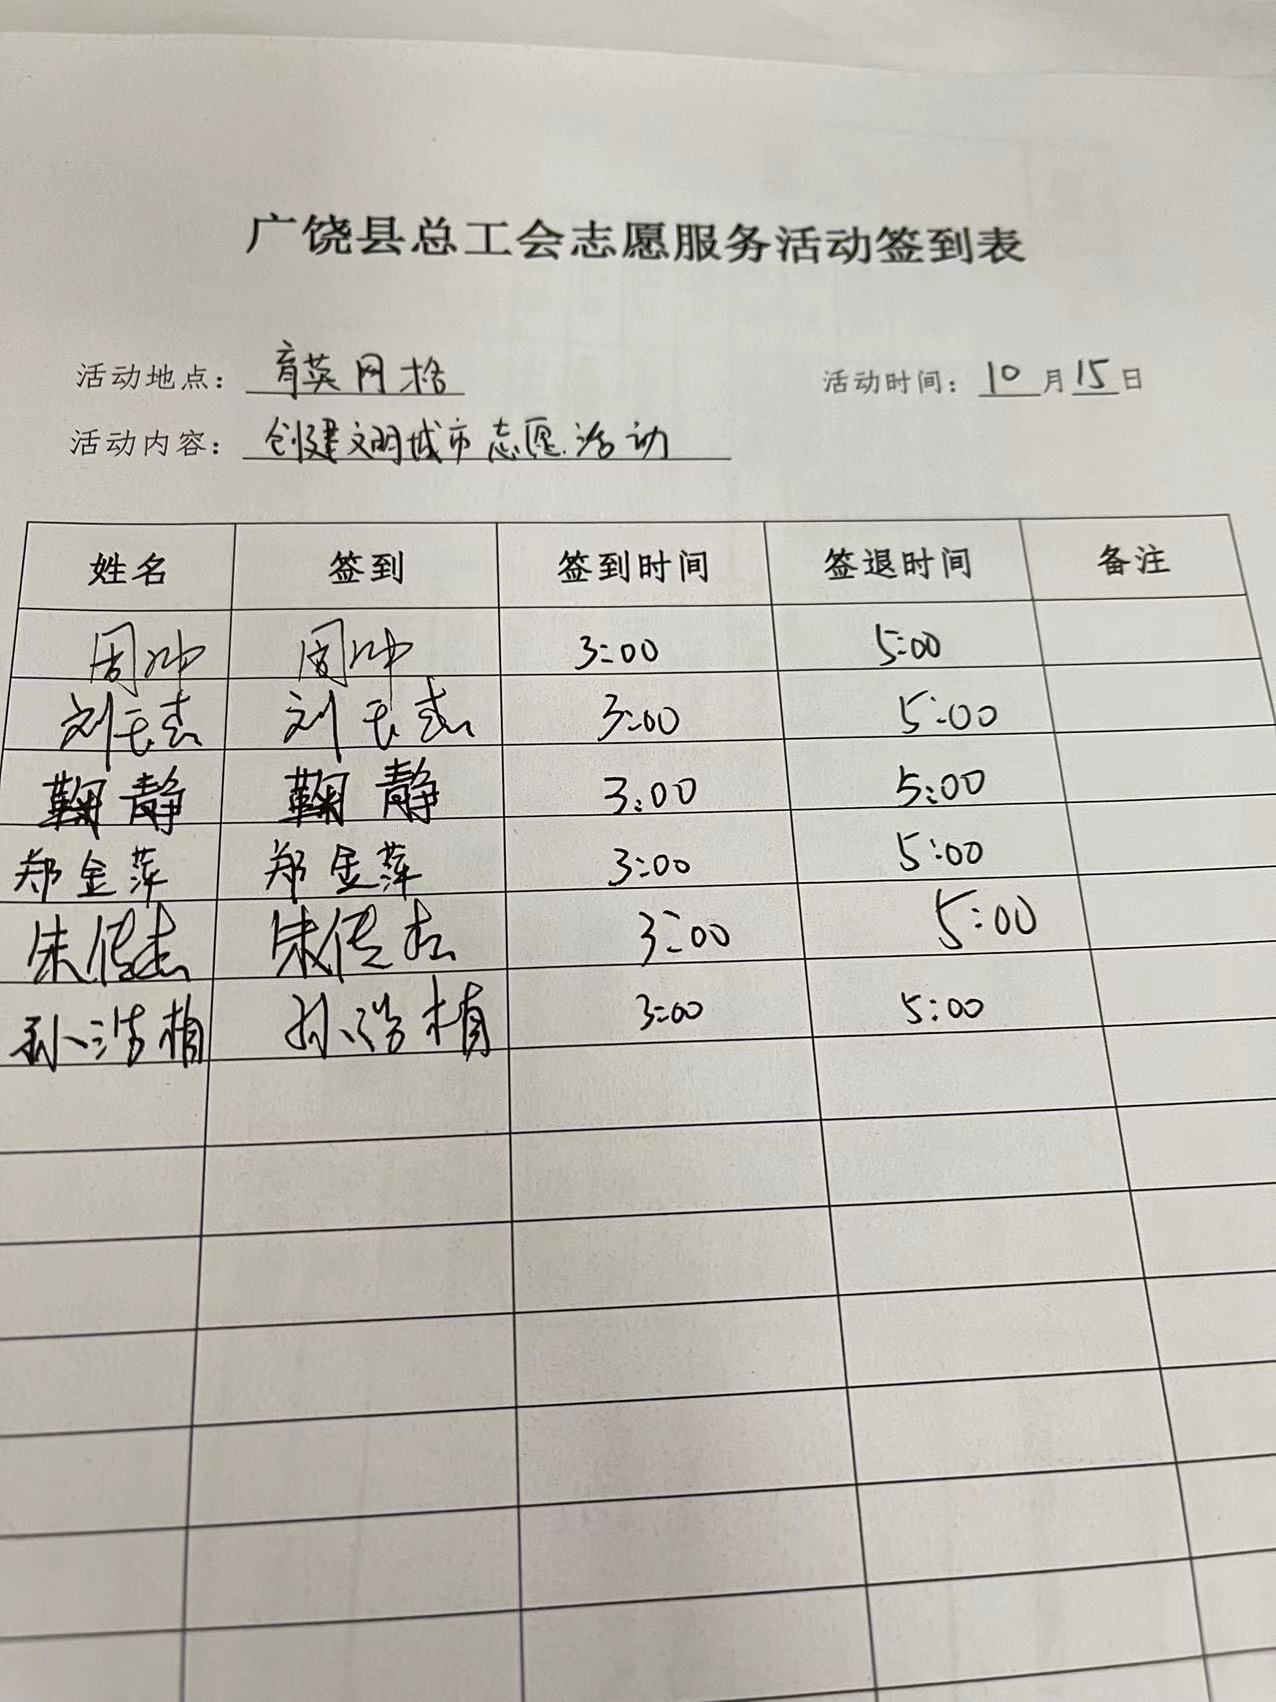 广饶县总工会志愿服务活动签到表
活动地点：育英网格 活动时间：10月15日
活动内容：创建文明城市志愿活动
姓名 签到 签到时间 签退时间 备注
周冲 周冲 3:00 5:00
刘 刘 3:00 5:00
鞠静 鞠静 3:00 5:00
郑金萍 郑金萍 3:00 5:00
朱传杰 朱传杰 3:00 5:00
孙浩楠 孙浩楠 3:00 5:00